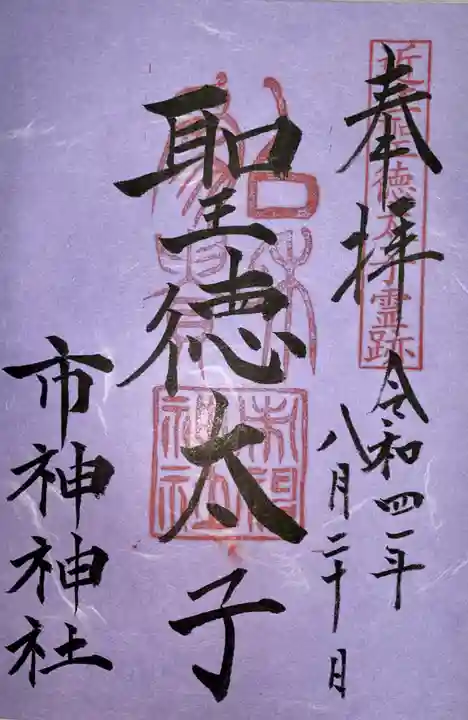 奉拝
近江聖徳太子霊跡
令和四年
八月二十日
聖徳太子
市神神社